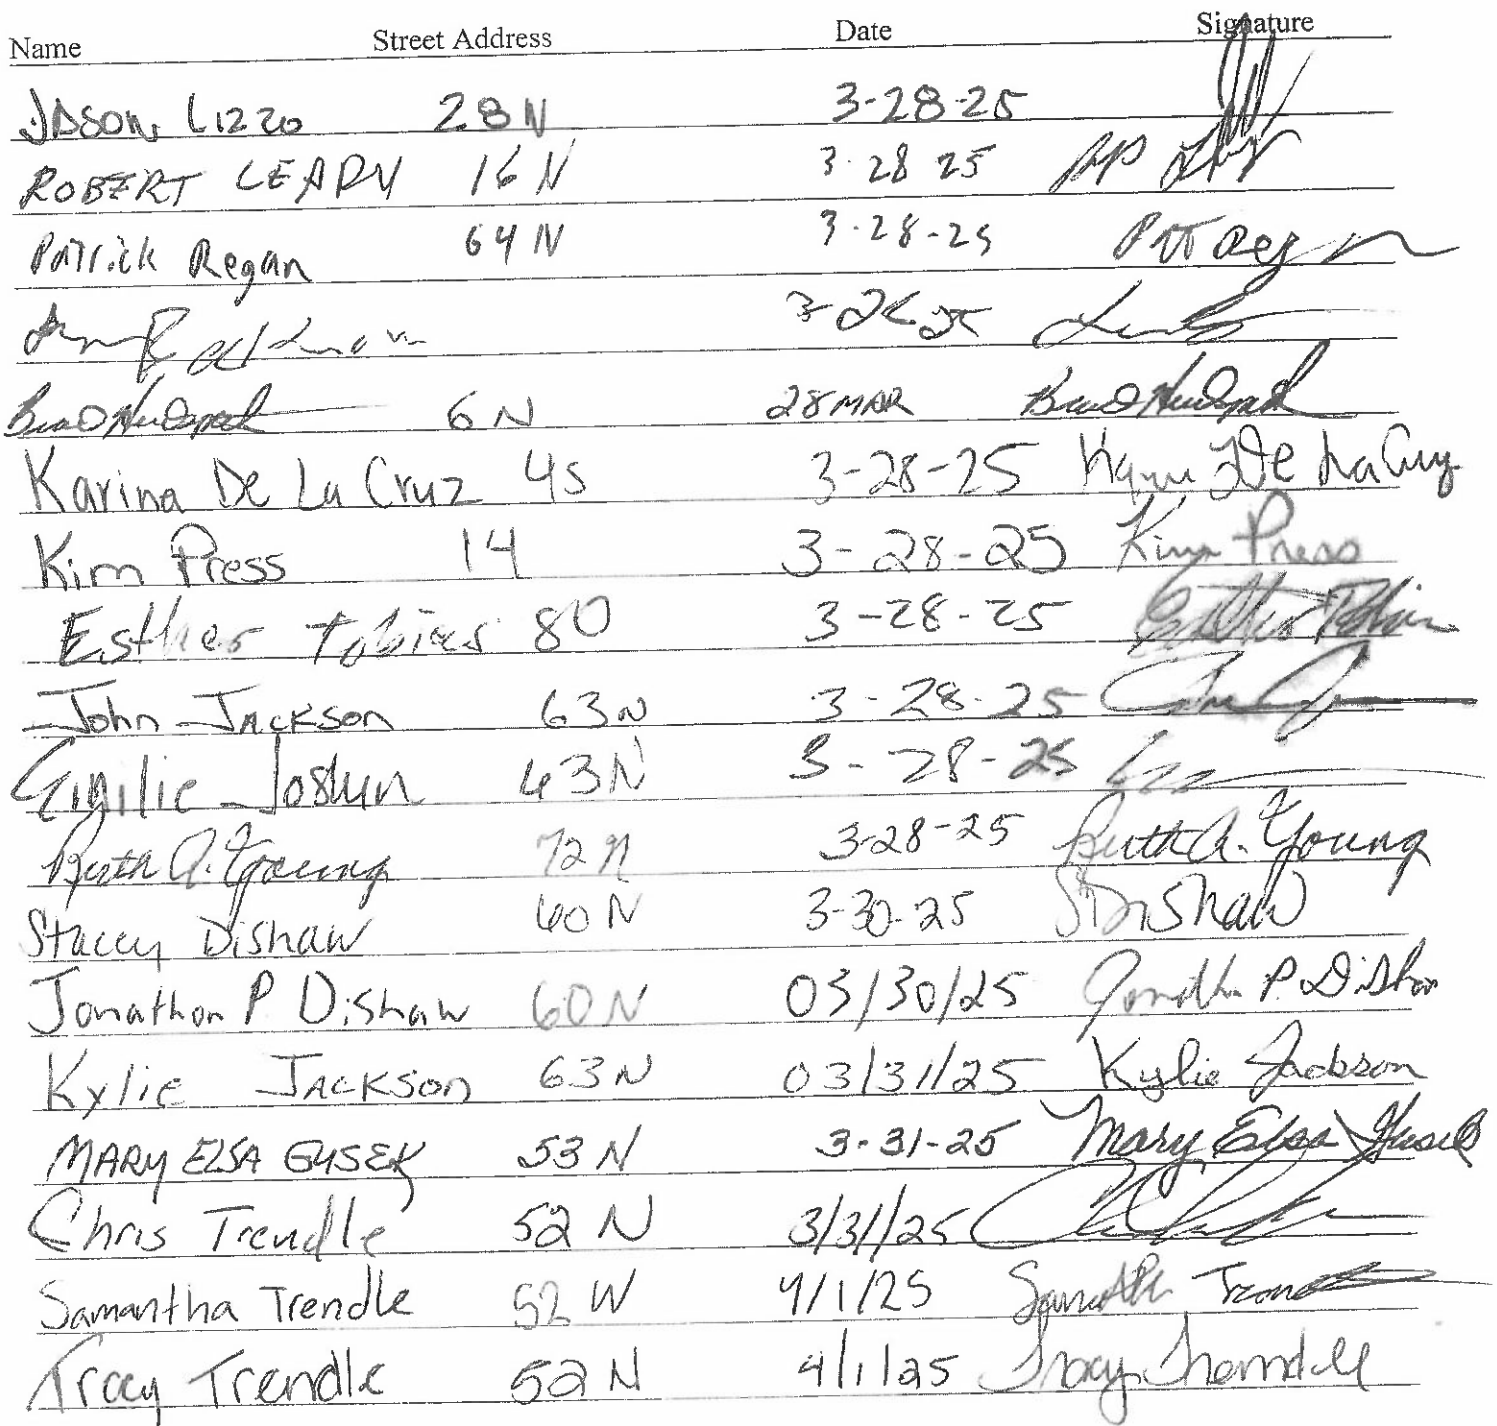 Name Street Address Date Signature
JASON LIZZO 28 N 3-28-25
ROBERT LEARY 16 N 3-28 25
Patrick Regan 64 N 3-28-25 Pat Regan
25
6 N 28 MAR
Karina De La Cruz 4S 3-28-25 De La Cruz
Kim Press 14 3-28-25 Kim Press
Esther Tobias 80 3-28-25 Esther Tobias
John JACKSON 63N 3-28-25
Emilie Joslyn 43N 3-28-25
Ruth A. Young 72 N 3-28-25 Ruth A. Young
Stacey Dishaw 60 N 3-30-25 SDishaw
Jonathon P Dishaw 60 N 03/30/25 P. Dishaw
Kylie JACKSON 63N 03/31/25 Kylie Jackson
MARY ELSA GUSEK 53 N 3-31-25 Mary Elsa Gusek
Chris Trendle 52 N 3/31/25
Samantha Trendle 52 W 4/1/25 Samantha
Tracy Trendle 52 N 4/1/25 Tracy Trendle